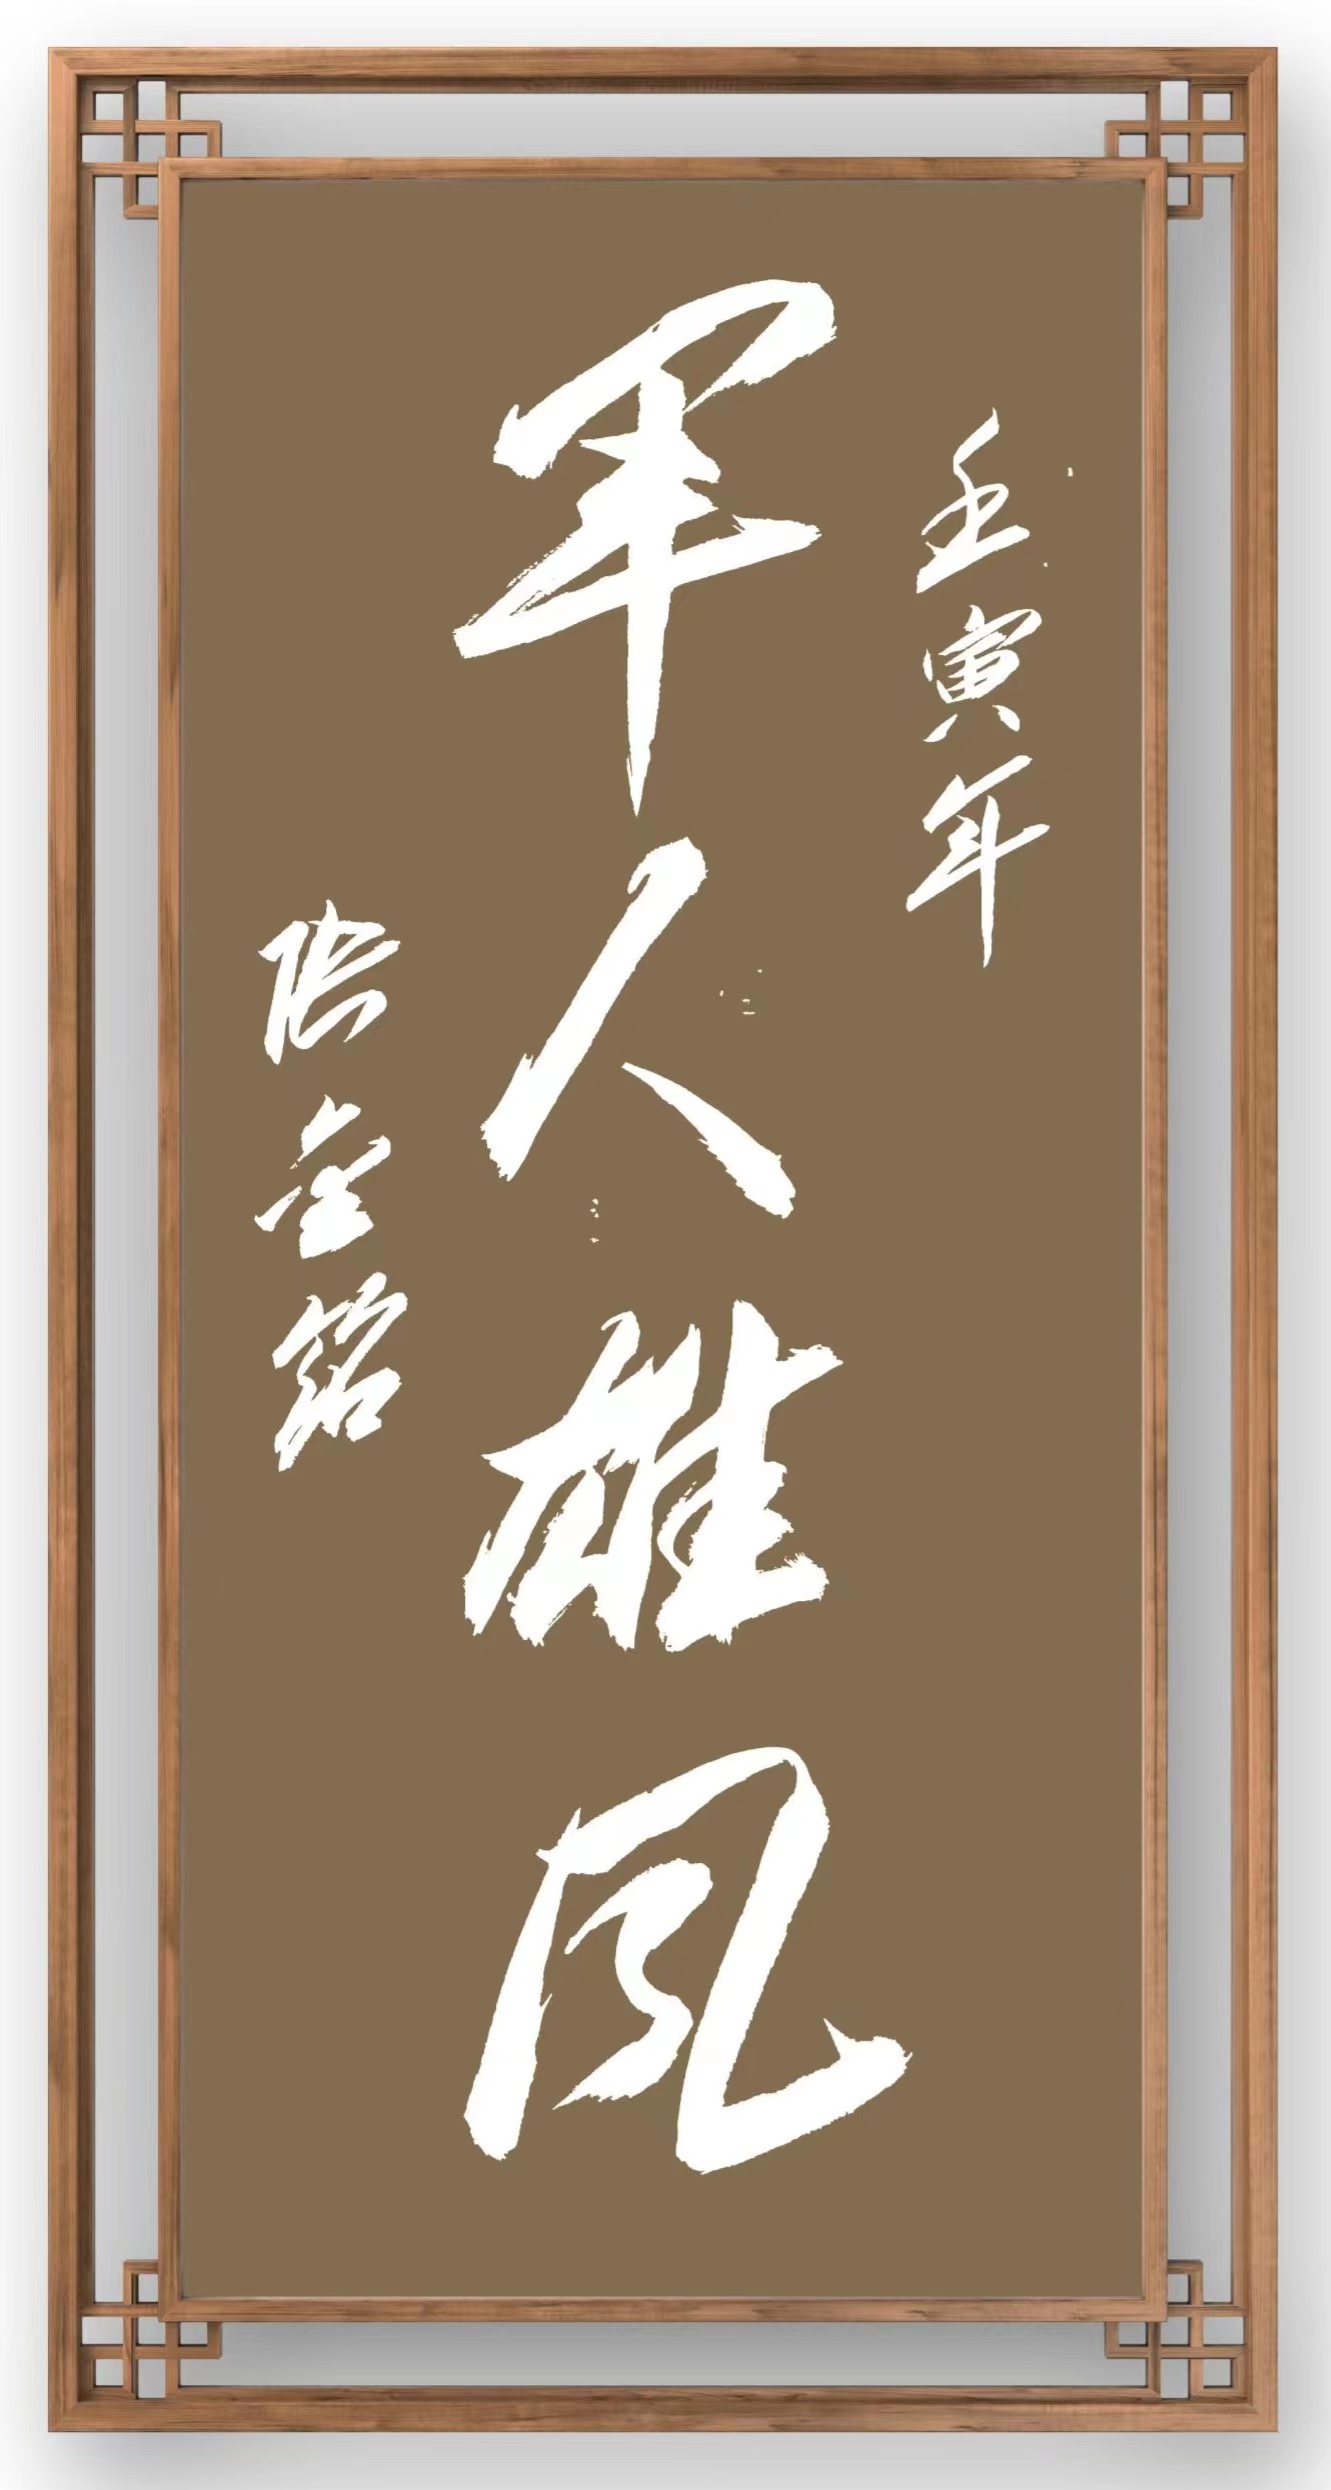 壬寅年
军人雄风
张金铭